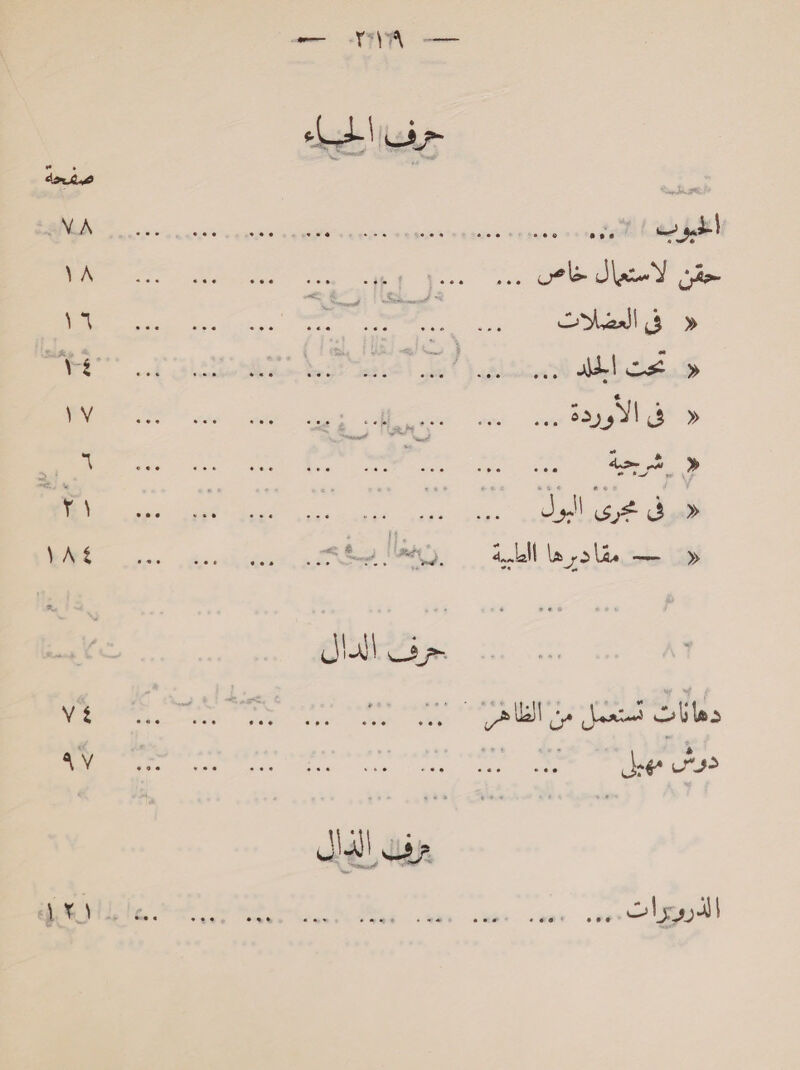 — ٢١٩ —
حرف الحاء
صفحة
الحبوب ... ... ... ... ... ... ... ... ... ٧٨
حقن لاستعمال خاص ... ... ... ... ... ... ... ... ١٨
« فى العضلات ... ... ... ... ... ... ... ١٦
« تحت الجلد ... ... ... ... ... ... ... ... ١٤
« فى الأوردة ... ... ... ... ... ... ... ... ١٧
« شرجية ... ... ... ... ... ... ... ... ٦
« فى مجرى البول ... ... ... ... ... ... ... ٢١
« — مقاديرها الطبية ... ... ... ... ... ... ١٨٤
حرف الدال
دهانات تستعمل من الظاهر ... ... ... ... ... ... ٧٤
دوش مهبلى ... ... ... ... ... ... ... ... ٩٧
حرف الذال
الذرورات ... ... ... ... ... ... ... ... ... ١٢١